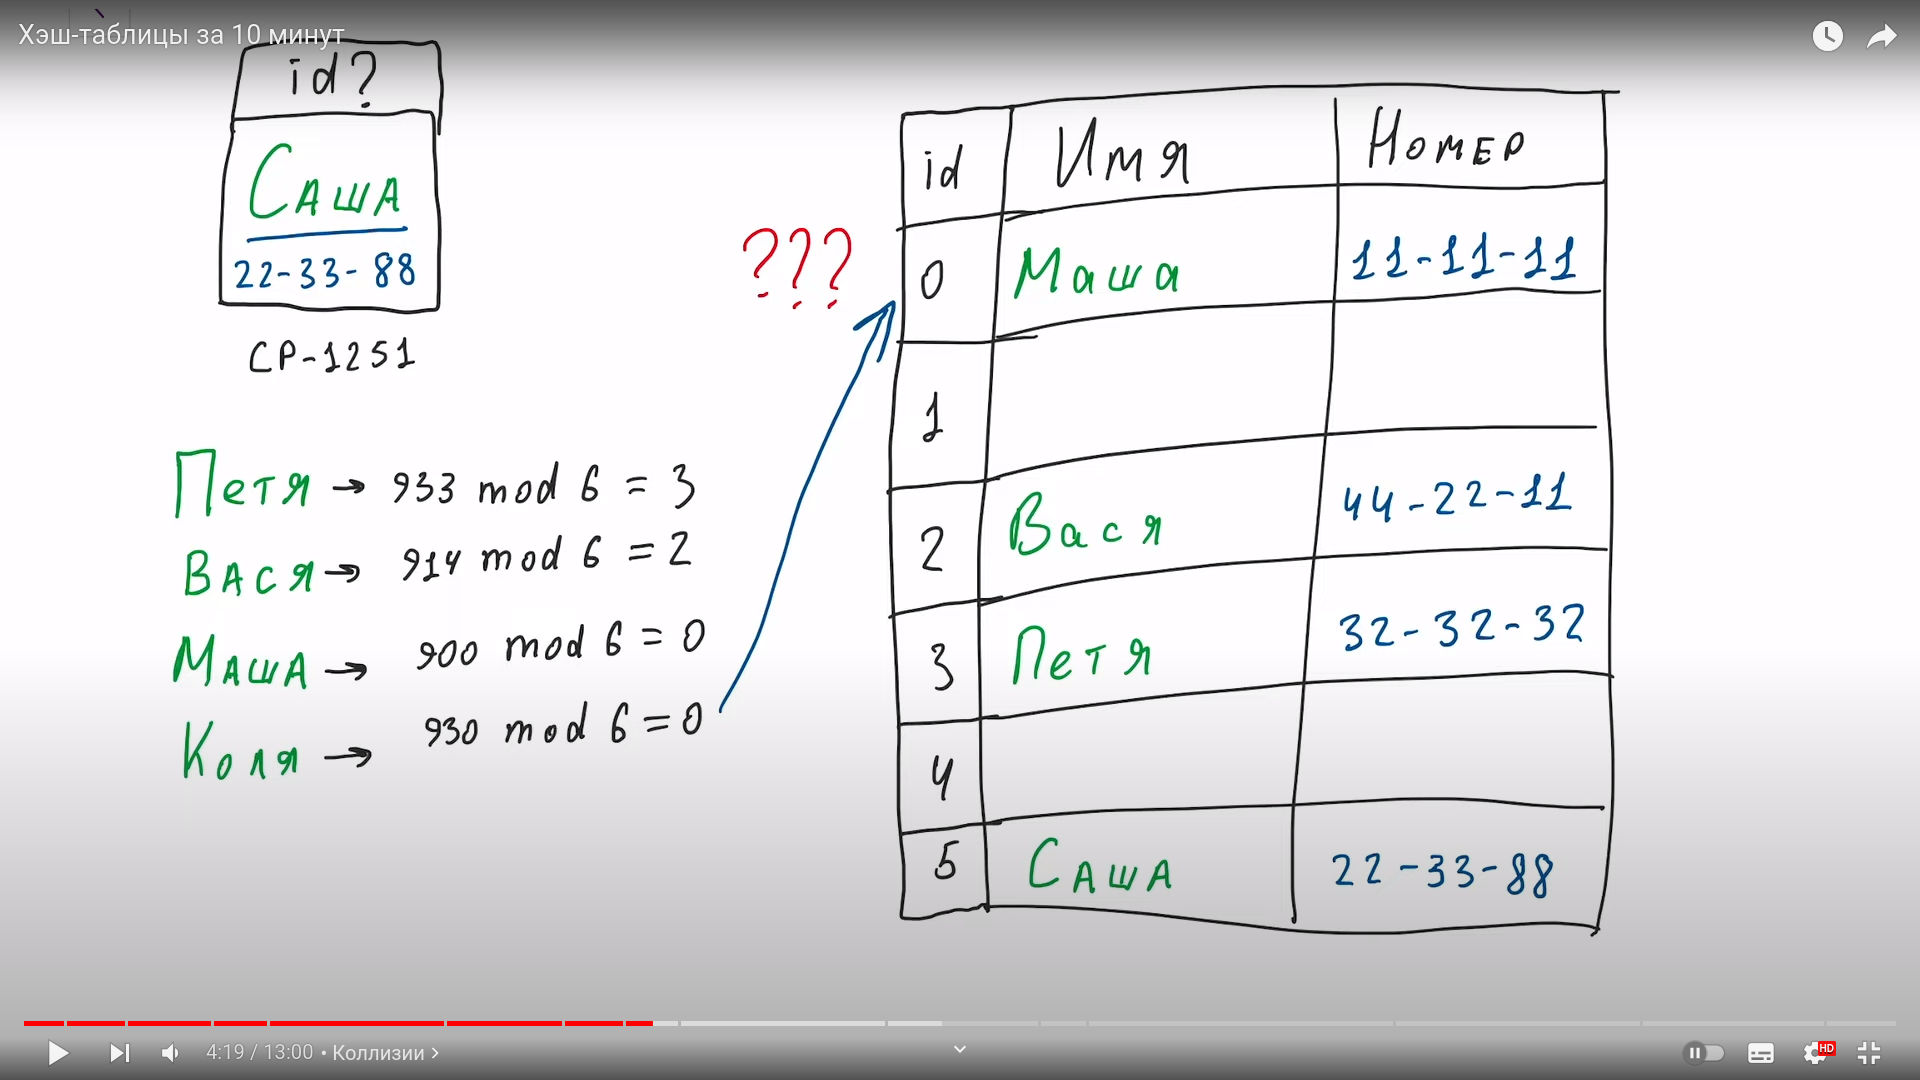 Хэш-таблицы за 10 минут
id?
Саша
22-33-88
CP-1251
Петя → 933 mod 6 = 3
Вася → 914 mod 6 = 2
Маша → 900 mod 6 = 0
Коля → 930 mod 6 = 0
???
id Имя Номер
0 Маша 11-11-11
1
2 Вася 44-22-11
3 Петя 32-32-32
4
5 Саша 22-33-88
4:19 / 13:00 • Коллизии
HD